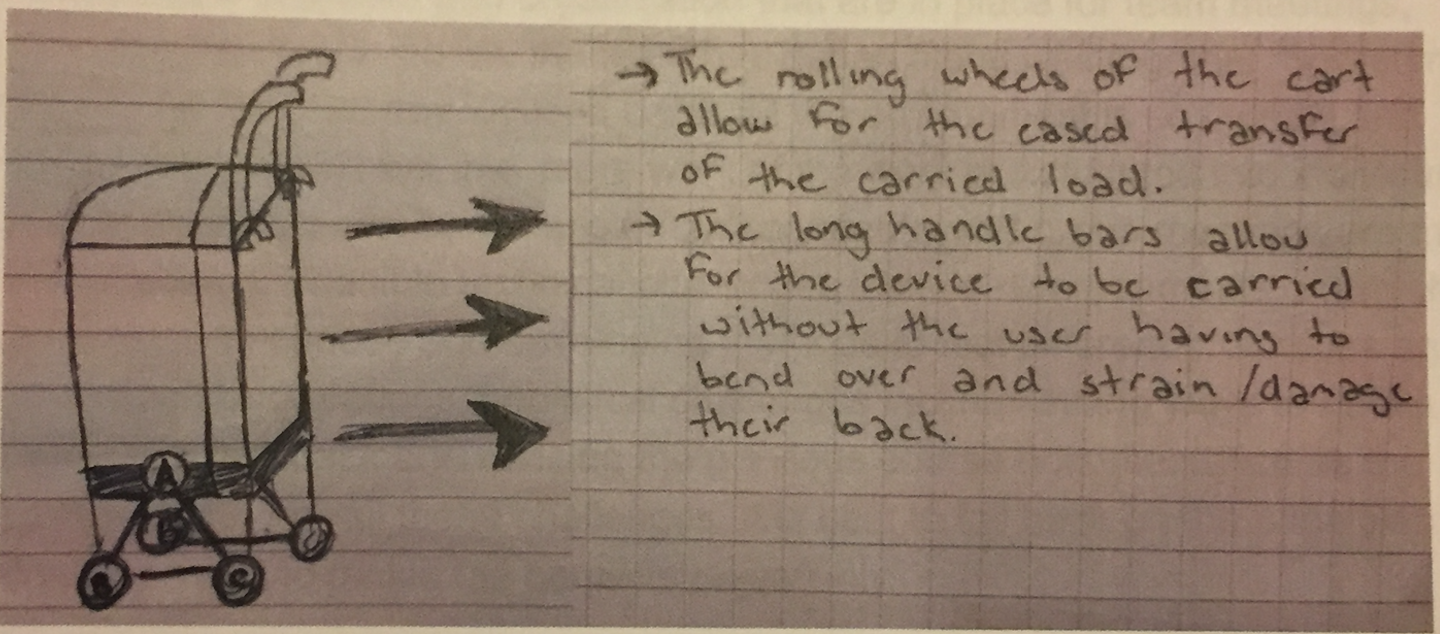 → The rolling wheels of the cart
allow for the eased transfer
of the carried load.
→ The long handle bars allow
for the device to be carried
without the user having to
bend over and strain /damage
their back.
A